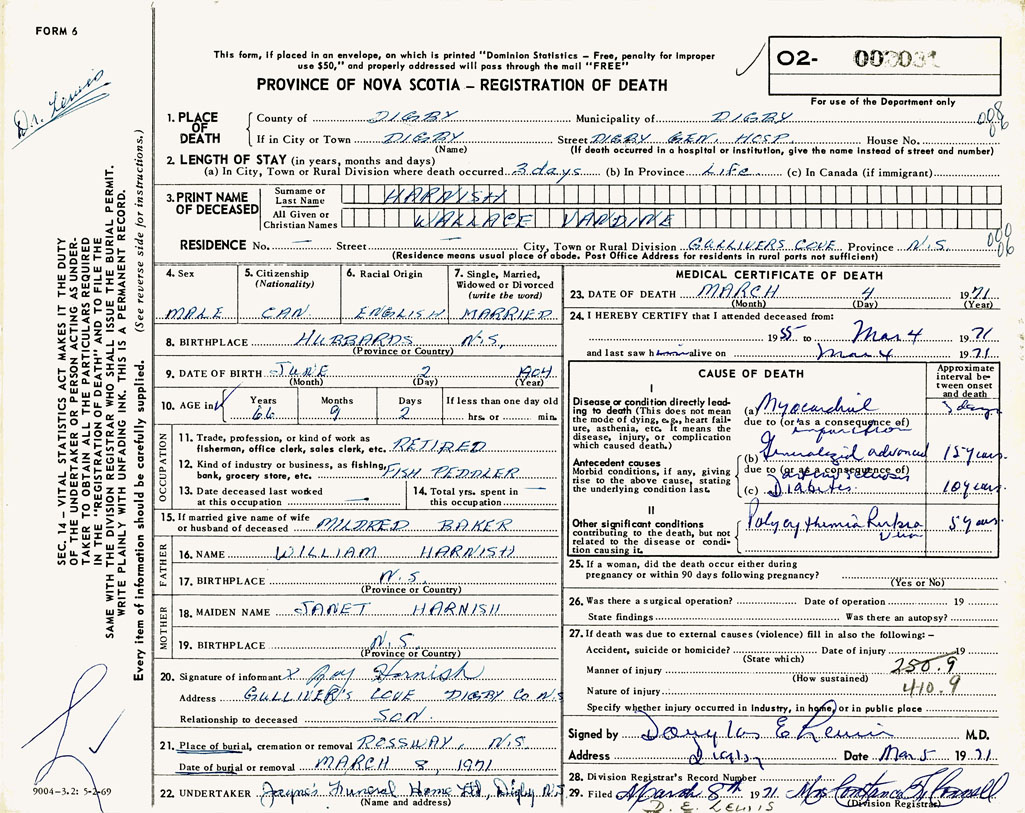 FORM 6
Dr. Lewis
This form, if placed in an envelope, on which is printed "Dominion Statistics – Free, penalty for improper
use $50," and properly addressed will pass through the mail "FREE"
PROVINCE OF NOVA SCOTIA – REGISTRATION OF DEATH
02- 003031
For use of the Department only
1. PLACE OF DEATH
County of DIGBY Municipality of DIGBY
If in City or Town DIGBY Street DIGBY GEN. HOSP. House No.
(Name) (If death occurred in a hospital or institution, give the name instead of street and number)
2. LENGTH OF STAY (in years, months and days)
(a) In City, Town or Rural Division where death occurred 3 days (b) In Province Life (c) In Canada (if immigrant)
3. PRINT NAME OF DECEASED
Surname or Last Name HARNISH
All Given or Christian Names WALLACE VARDINE
RESIDENCE No. — Street — City, Town or Rural Division GULLIVERS COVE Province N.S.
(Residence means usual place of abode. Post Office Address for residents in rural parts not sufficient)
4. Sex
MALE
5. Citizenship (Nationality)
CAN.
6. Racial Origin
ENGLISH
7. Single, Married, Widowed or Divorced (write the word)
MARRIED
8. BIRTHPLACE HUBBARDS N.S.
(Province or Country)
9. DATE OF BIRTH JUNE 2 1904
(Month) (Day) (Year)
10. AGE in Years Months Days If less than one day old
66 9 2 hrs. or min.
OCCUPATION
11. Trade, profession, or kind of work as
fisherman, office clerk, sales clerk, etc. RETIRED
12. Kind of industry or business, as fishing,
bank, grocery store, etc. FISH PEDDLER
13. Date deceased last worked
at this occupation —
14. Total yrs. spent in
this occupation —
15. If married give name of wife
or husband of deceased MILDRED BAKER
FATHER
16. NAME WILLIAM HARNISH
17. BIRTHPLACE N.S.
(Province or Country)
MOTHER
18. MAIDEN NAME JANET HARNISH
19. BIRTHPLACE N.S.
(Province or Country)
20. Signature of informant x Roy Harnish
Address GULLIVER'S COVE DIGBY CO N.S
Relationship to deceased SON.
21. Place of burial, cremation or removal ROSSWAY, N.S.
Date of burial or removal MARCH 8, 1971
22. UNDERTAKER Jayne's Funeral Home Ltd, Digby N.S
(Name and address)
MEDICAL CERTIFICATE OF DEATH
23. DATE OF DEATH MARCH 4 1971
(Month) (Day) (Year)
24. I HEREBY CERTIFY that I attended deceased from:
1955 to Mar 4 1971
and last saw him alive on Mar 4 1971
CAUSE OF DEATH
Approximate interval between onset and death
I
Disease or condition directly leading to death (This does not mean the mode of dying, e.g., heart failure, asthenia, etc. It means the disease, injury, or complication which caused death.)
(a) Myocardial infarction 3 days
due to (or as a consequence of)
Antecedent causes
Morbid conditions, if any, giving rise to the above cause, stating the underlying condition last.
(b) Generalized advanced 15 years.
due to (or as a consequence of)
(c) Diabetes. 10 years.
II
Other significant conditions
contributing to the death, but not related to the disease or condition causing it.
Polycythemia Rubra Vera 5 years.
25. If a woman, did the death occur either during
pregnancy or within 90 days following pregnancy?
(Yes or No)
26. Was there a surgical operation? Date of operation 19
State findings Was there an autopsy?
27. If death was due to external causes (violence) fill in also the following: –
Accident, suicide or homicide? Date of injury 19
(State which)
Manner of injury 250.9
(How sustained)
Nature of injury 410.9
Specify whether injury occurred in industry, in home, or in public place
Signed by Douglas E Lewis M.D.
Address Digby Date Mar 5 1971
28. Division Registrar's Record Number
29. Filed March 8th 1971 Mrs Constance
(Division Registrar)
D. E. LEWIS
SEC. 14 – VITAL STATISTICS ACT MAKES IT THE DUTY
OF THE UNDERTAKER OR PERSON ACTING AS UNDER-
TAKER TO OBTAIN ALL THE PARTICULARS REQUIRED
IN THE "REGISTRATION OF DEATH" AND TO FILE THE
SAME WITH THE DIVISION REGISTRAR WHO SHALL ISSUE THE BURIAL PERMIT.
WRITE PLAINLY WITH UNFADING INK. THIS IS A PERMANENT RECORD.
Every item of information should be carefully supplied. (See reverse side for instructions.)
9004-3.2: 5-2-69